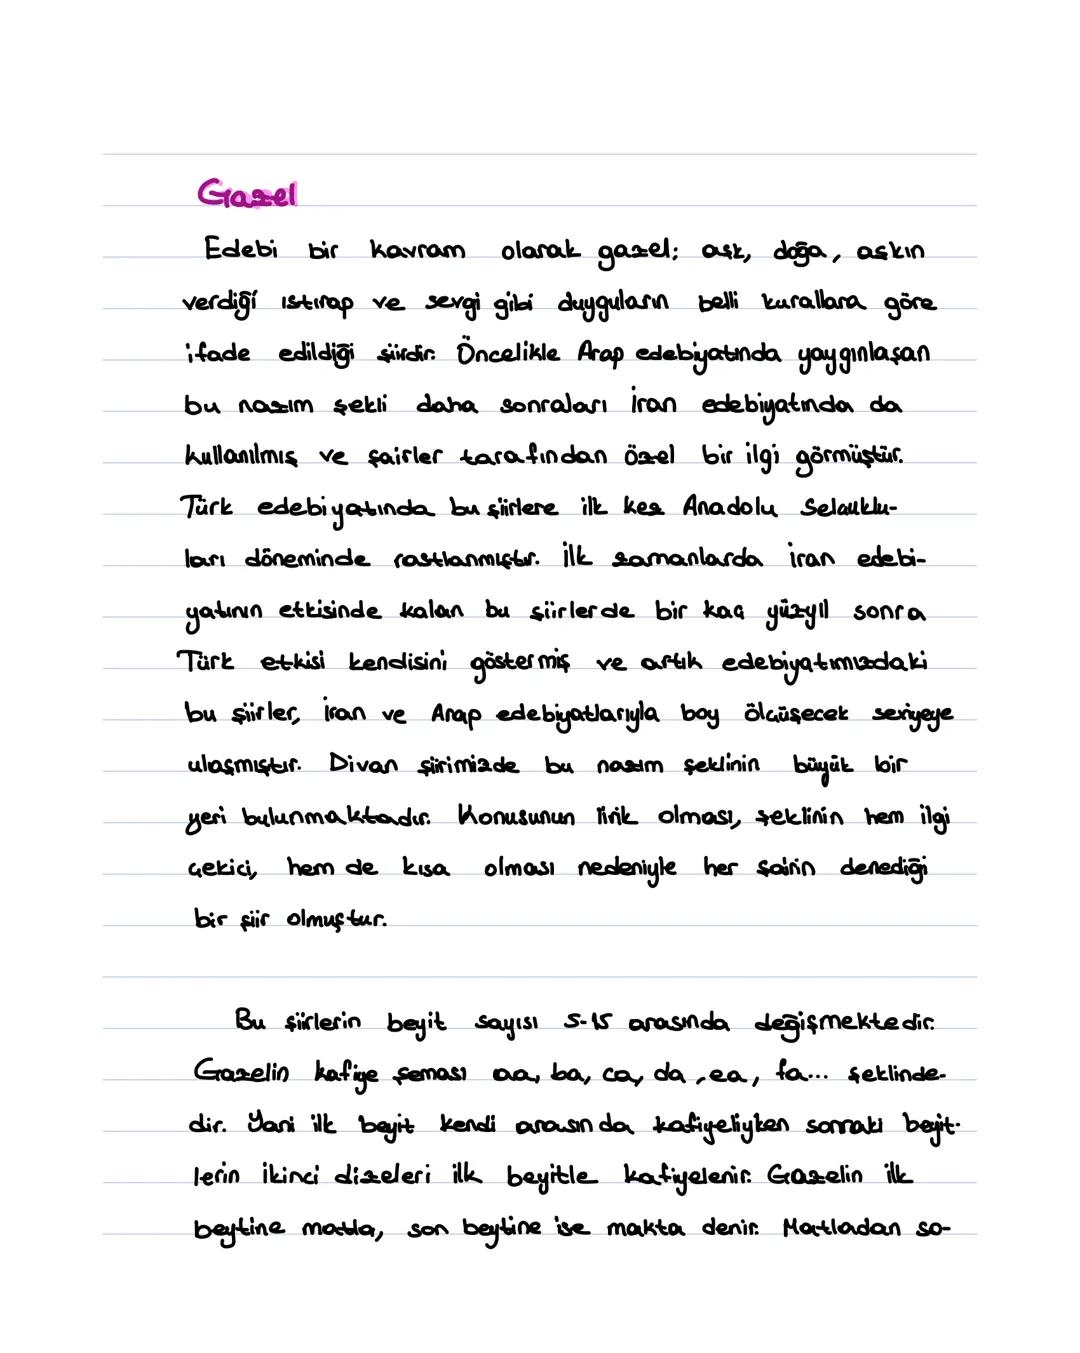 Gazel
Edebi bir kavram olarak gazel; aşk, doğa, aşkın
verdiği ıstırap ve sevgi gibi duyguların belli kurallara göre
ifade edildiği şiirdir. Öncelikle Arap edebiyatında yaygınlaşan
bu nazım şekli daha sonraları İran edebiyatında da
kullanılmış ve şairler tarafından özel bir ilgi görmüştür.
Türk edebiyatında bu şiirlere ilk kez Anadolu Selçuklu-
ları döneminde rastlanmıştır. İlk zamanlarda İran edebi-
yatının etkisinde kalan bu şiirlerde bir kaç yüzyıl sonra
Türk etkisi kendisini göstermiş ve artık edebiyatımızdaki
bu şiirler, İran ve Arap edebiyatlarıyla boy ölçüşecek seviyeye
ulaşmıştır. Divan şiirimizde bu nazım şeklinin büyük bir
yeri bulunmaktadır. Konusunun lirik olması, şeklinin hem ilgi
çekici, hem de kısa olması nedeniyle her şairin denediği
bir şiir olmuştur.
Bu şiirlerin beyit sayısı 5-15 arasında değişmektedir.
Gazelin kafiye şeması aa, ba, ca, da, ea, fa... şeklinde-
dir. Yani ilk beyit kendi arasında kafiyeliyken sonraki beyit-
lerin ikinci dizeleri ilk beyitle kafiyelenir. Gazelin ilk
beytine matla, son beytine ise makta denir. Matladan so-